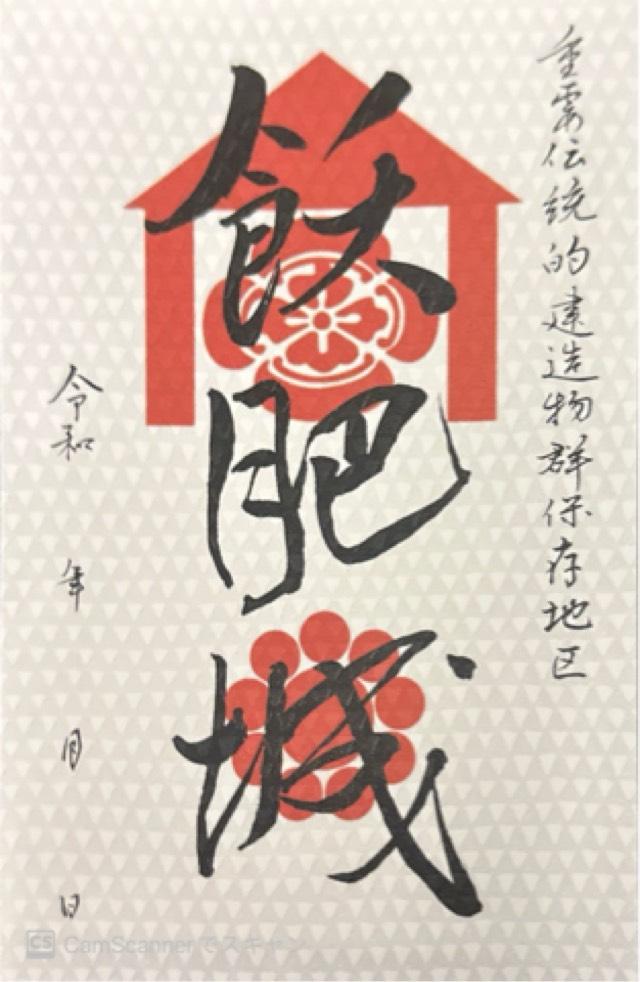 重要伝統的建造物群保存地区
飫肥城
令和 年 月 日
CS CamScannerでスキャン